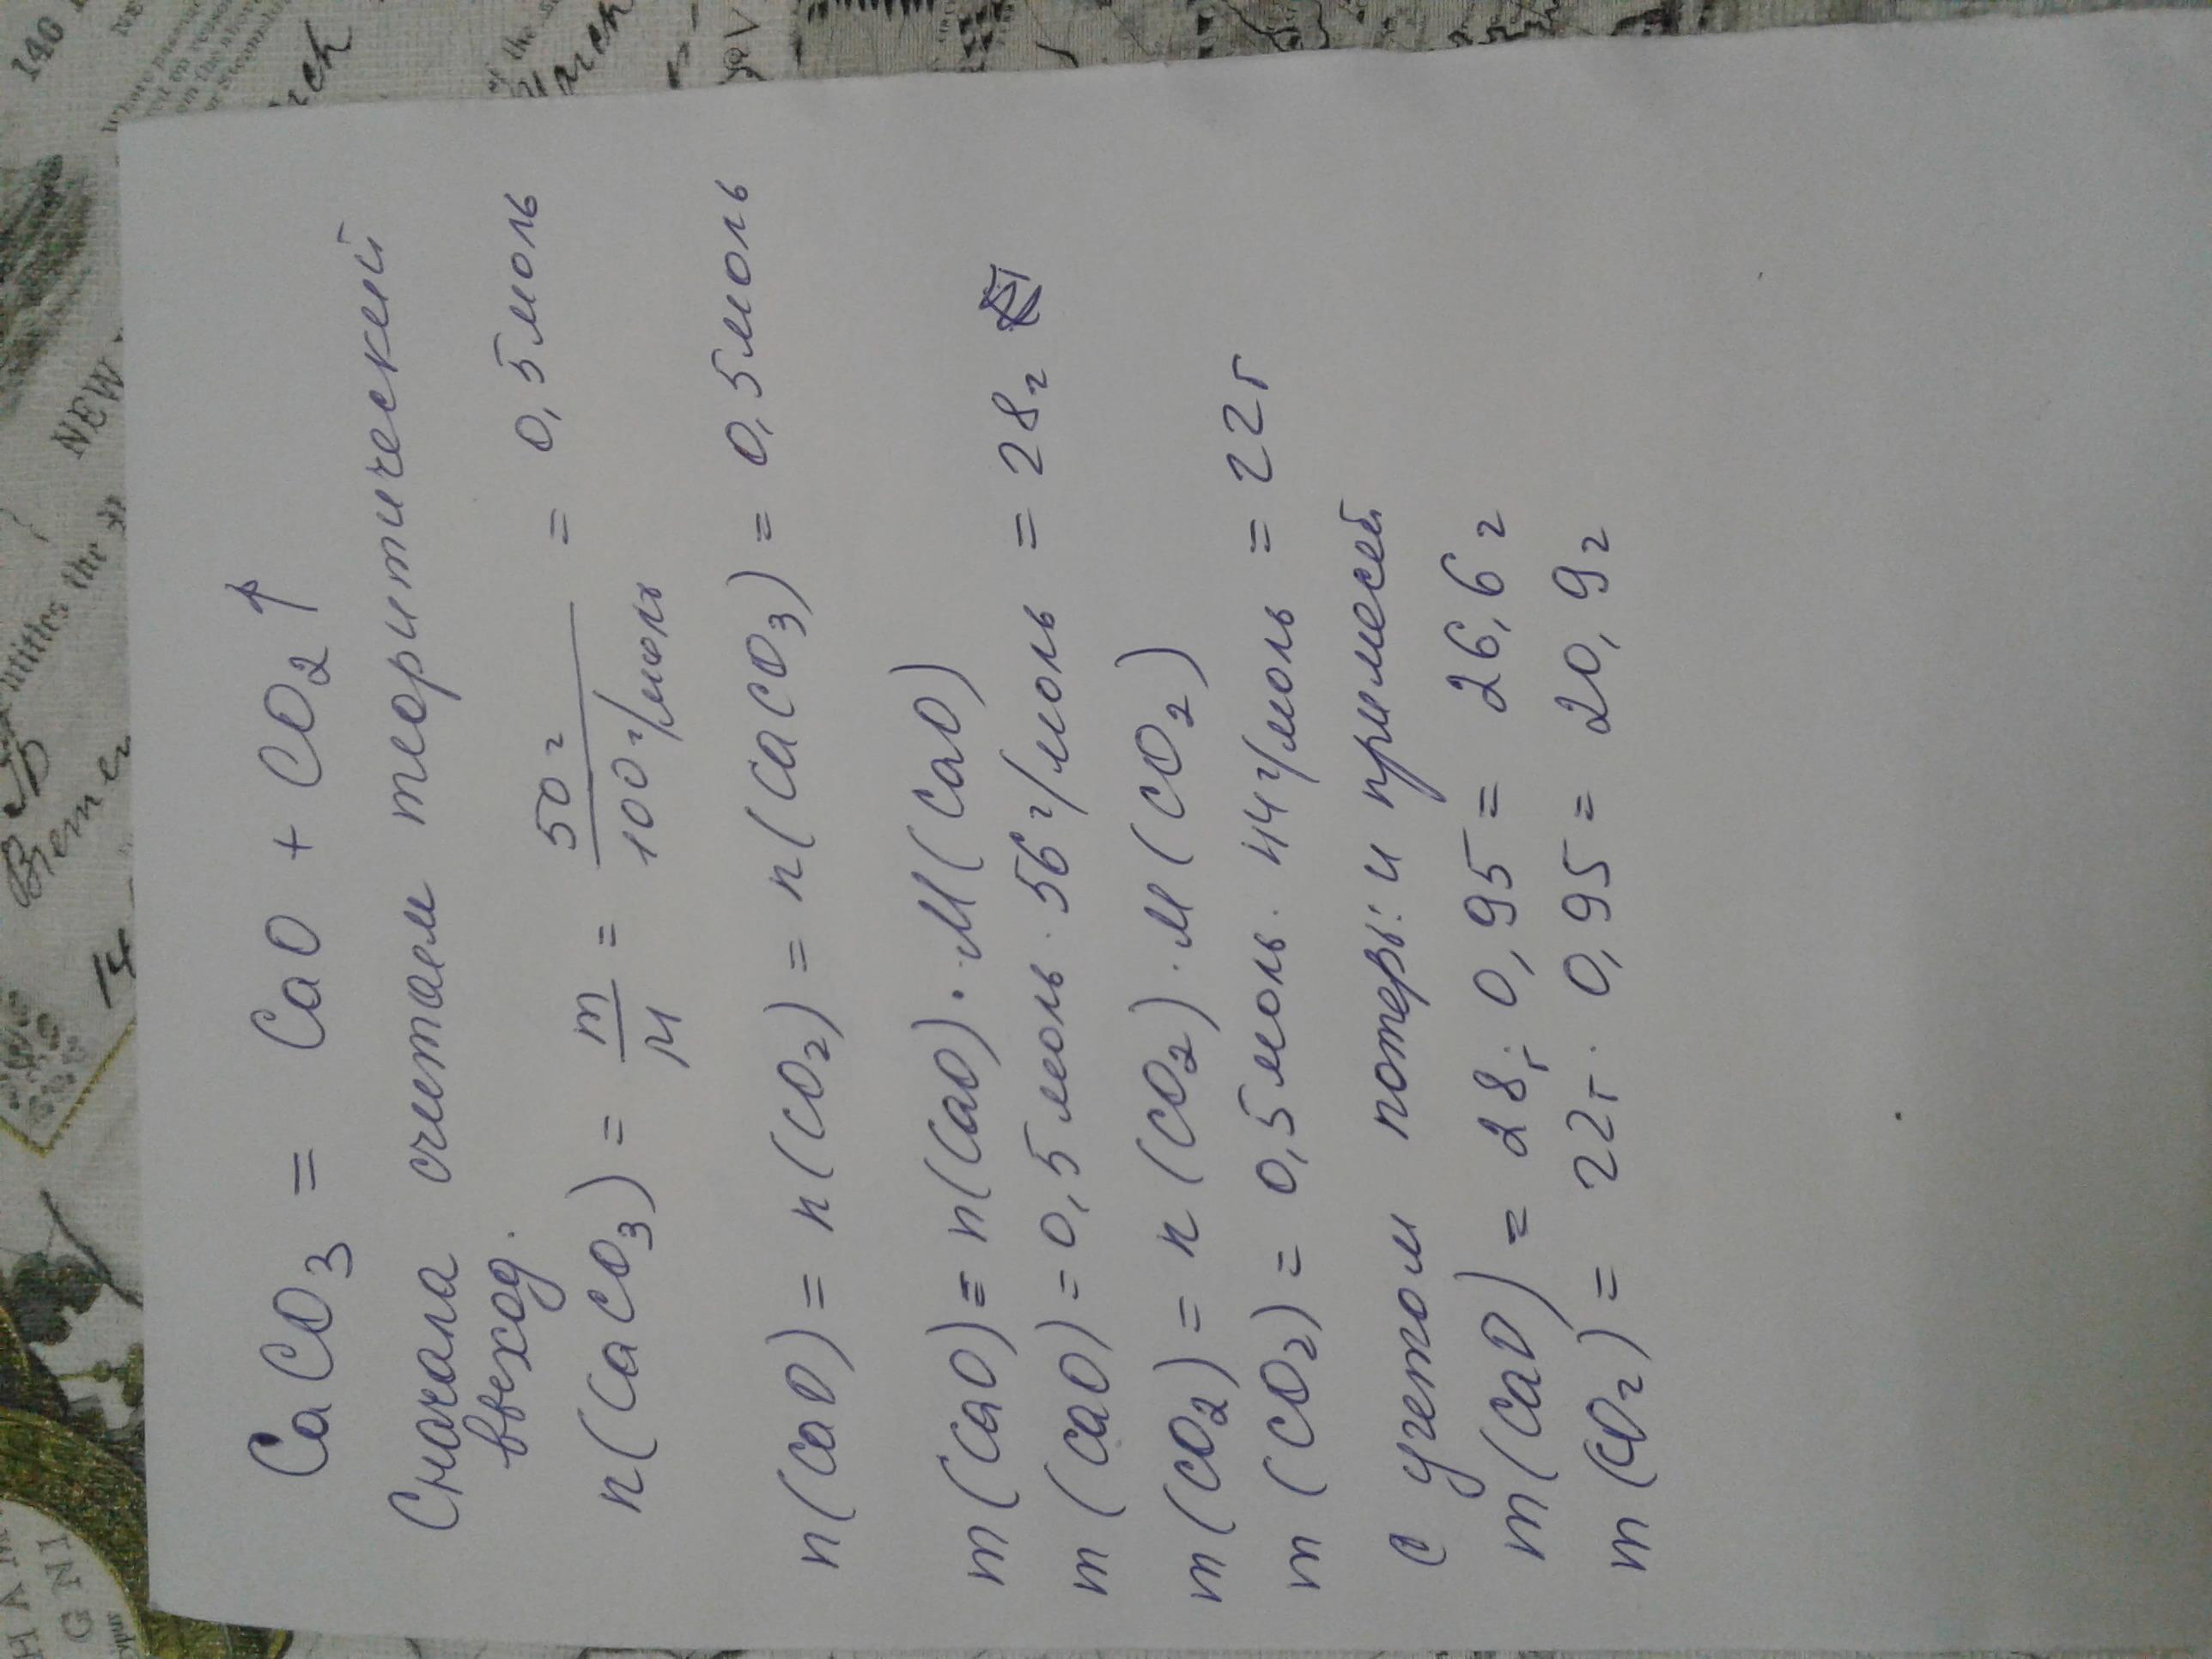 CaCO3 = CaO + CO2 ↑
Сначала считаем теоритический
выход.
n(CaCO3) = m/M = 50г/100г/моль = 0,5моль
n(CaO) = n(CO2) = n(CaCO3) = 0,5моль
m(CaO) = n(CaO)·M(CaO)
m(CaO) = 0,5моль·56г/моль = 28г
m(CO2) = n(CO2)·M(CO2)
m(CO2) = 0,5моль·44г/моль = 22г
с учетом потерь: и примесей
m(CaO) = 28г·0,95 = 26,6г
m(CO2) = 22г·0,95 = 20,9г
140
NEW
the
Bremer
14
of the
GNI